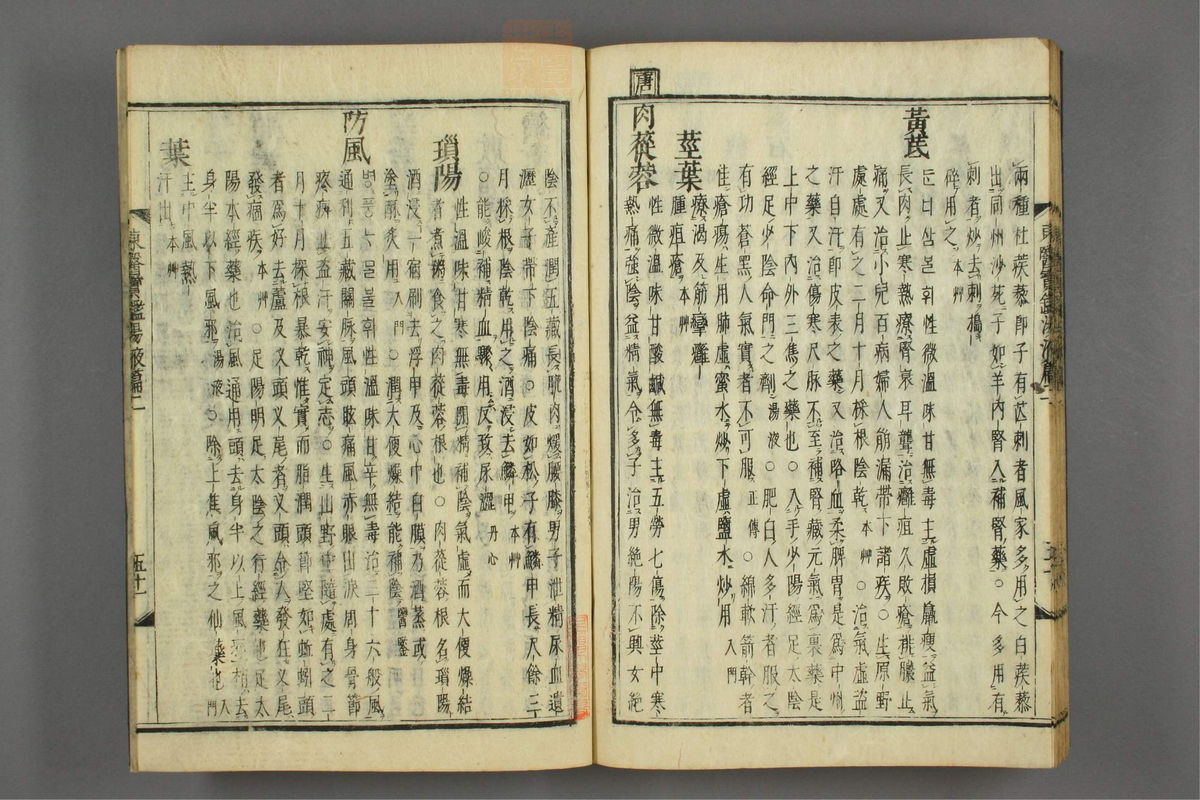 兩種杜蒺蔾即子有芒刺者風家多用之白蒺蔾
出同州沙苑子如羊內腎入補腎藥○今多用有
刺者炒去刺搗
碎用之本艸
黃芪
둔너삼불휘性微溫味甘無毒主虛損羸瘦益氣
長肉止寒熱療腎衰耳聾治癰疽久敗瘡排膿止
痛又治小兒百病婦人筋漏帶下諸疾○生原野
處處有之二月十月採根陰乾本艸○治氣虛盜
汗自汗即皮表之藥又治咯血柔脾胃是爲中州
之藥又治傷寒尺脉不至補腎藏元氣爲裏藥是
上中下內外三焦之藥也○入手少陽經足太陰
經足少陰命門之劑湯液○肥白人多汗者服之
有功蒼黑人氣實者不可服正傳○綿軟箭幹者
佳瘡瘍生用肺虛蜜水炒下虛鹽水炒用入門
莖葉
療渴及筋攣癰
腫疽瘡本艸
唐
肉蓯蓉
性微溫味甘酸鹹無毒主五勞七傷除莖中寒
熱痛強陰益精氣令多子治男絕陽不興女絕
陰不產潤五藏長肌肉煖腰膝男子泄精尿血遺
瀝女子帶下陰痛○皮如松子有鱗甲長尺餘三
月採根陰乾用之酒浸去鱗甲本艸
○能峻補精血驟用反致尿澀丹心
瑣陽
性溫味甘寒無毒閉精補陰氣虛而大便燥結
者煮粥食之肉蓯蓉根也○肉蓯蓉根名瑣陽
酒浸一宿刷去浮甲及心中白膜乃酒蒸或
塗酥炙用入門○潤大便燥結能補陰醫鑑
防風
병풍ᄂᆞ믈불휘性溫味甘辛無毒治三十六般風
通利五藏關脉風頭眩痛風赤眼出淚周身骨節
疼痹止盜汗安神定志○生山野中隨處有之二
月十月採根暴乾惟實而脂潤頭節堅如蚯蚓頭
者爲好去蘆及叉頭叉尾者叉頭令人發狂叉尾
發痼疾本艸○足陽明足太陰之行經藥也足太
陽本經藥也治風通用頭去身半以上風邪梢去
身半以下風邪湯液○除上焦風邪之仙藥也入門
葉
主中風熱
汗出本艸
東醫寶鑑湯液篇二
五十一